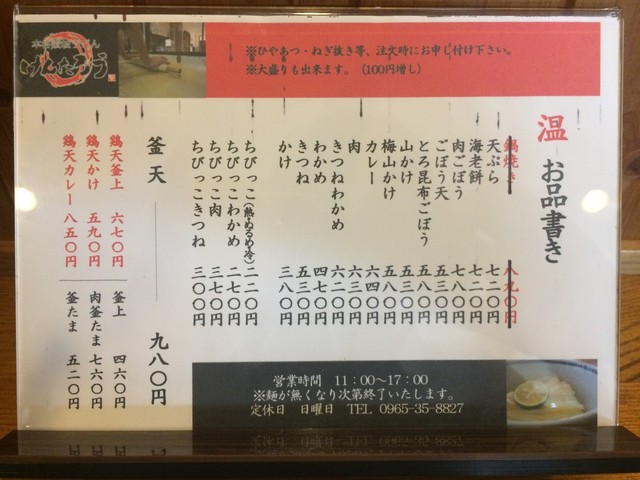 本手打うどん
げんたろう
※ひやあつ・ねぎ抜き等、注文時にお申し付け下さい。
※大盛りも出来ます。(100円増し)
温 お品書き
鍋焼き 八九〇円
天ぷら 七二〇円
海老餅 七二〇円
肉ごぼう 七八〇円
ごぼう天 五三〇円
とろ昆布ごぼう 五八〇円
山かけ 五三〇円
梅山かけ 五八〇円
カレー 六四〇円
肉 六三〇円
きつねわかめ 六二〇円
わかめ 四七〇円
きつね 五三〇円
かけ 三八〇円
ちびっこ(熱・ぬるめ・冷) 二二〇円
ちびっこわかめ 二七〇円
ちびっこ肉 三七〇円
ちびっこきつね 三〇〇円
釜天 九八〇円
鶏天釜上 六七〇円
鶏天かけ 五九〇円
鶏天カレー 八五〇円
釜上 四六〇円
肉釜たま 七六〇円
釜たま 五二〇円
営業時間 11:00~17:00
※麺が無くなり次第終了いたします。
定休日 日曜日 TEL 0965-35-8827